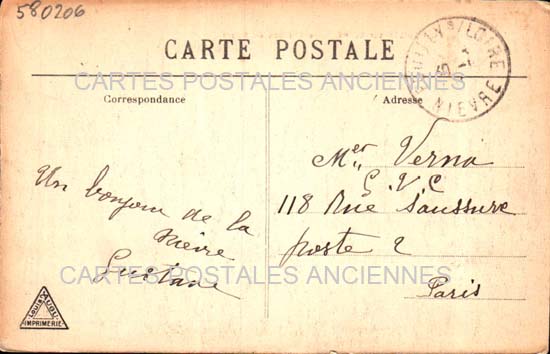 580206
CARTE POSTALE
CARTES POSTALES ANCIENNES
Correspondance
Adresse
S/LOIRE
NIEVRE
Un bonjour de la
Nièvre
Gustave
Mer Verna
G.V.C
118 Rue Saussure
poste 2
Paris
CARTES POSTALES ANCIENNES
IMPRIMERIE